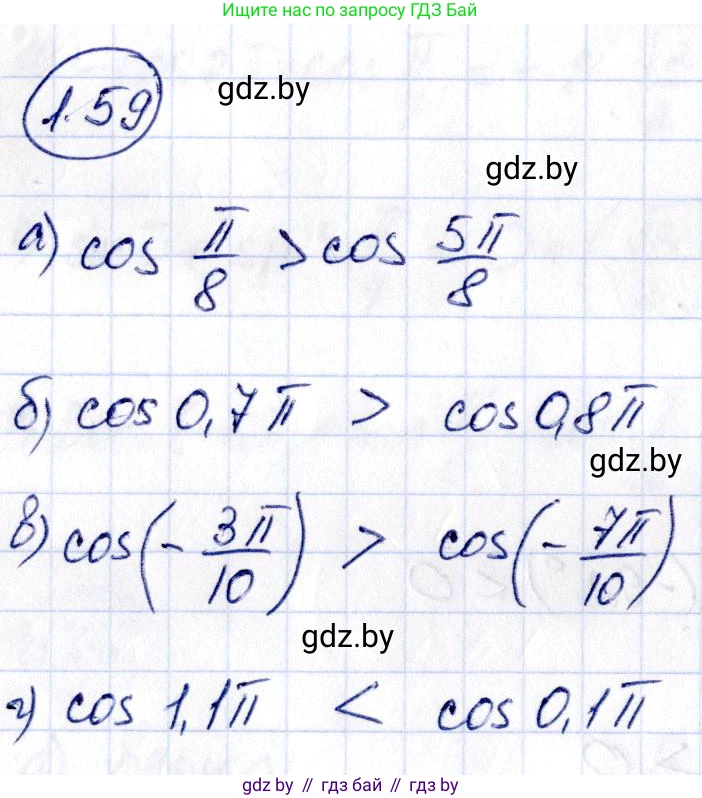 Ищите нас по запросу ГДЗ Бай
1.59
gdz.by
gdz.by
а) cos π/8 > cos 5π/8
б) cos 0,7π > cos 0,8π
gdz.by
в) cos(-3π/10) > cos(-7π/10)
gdz.by
г) cos 1,1π < cos 0,1π
gdz by // гдз бай // гдз by